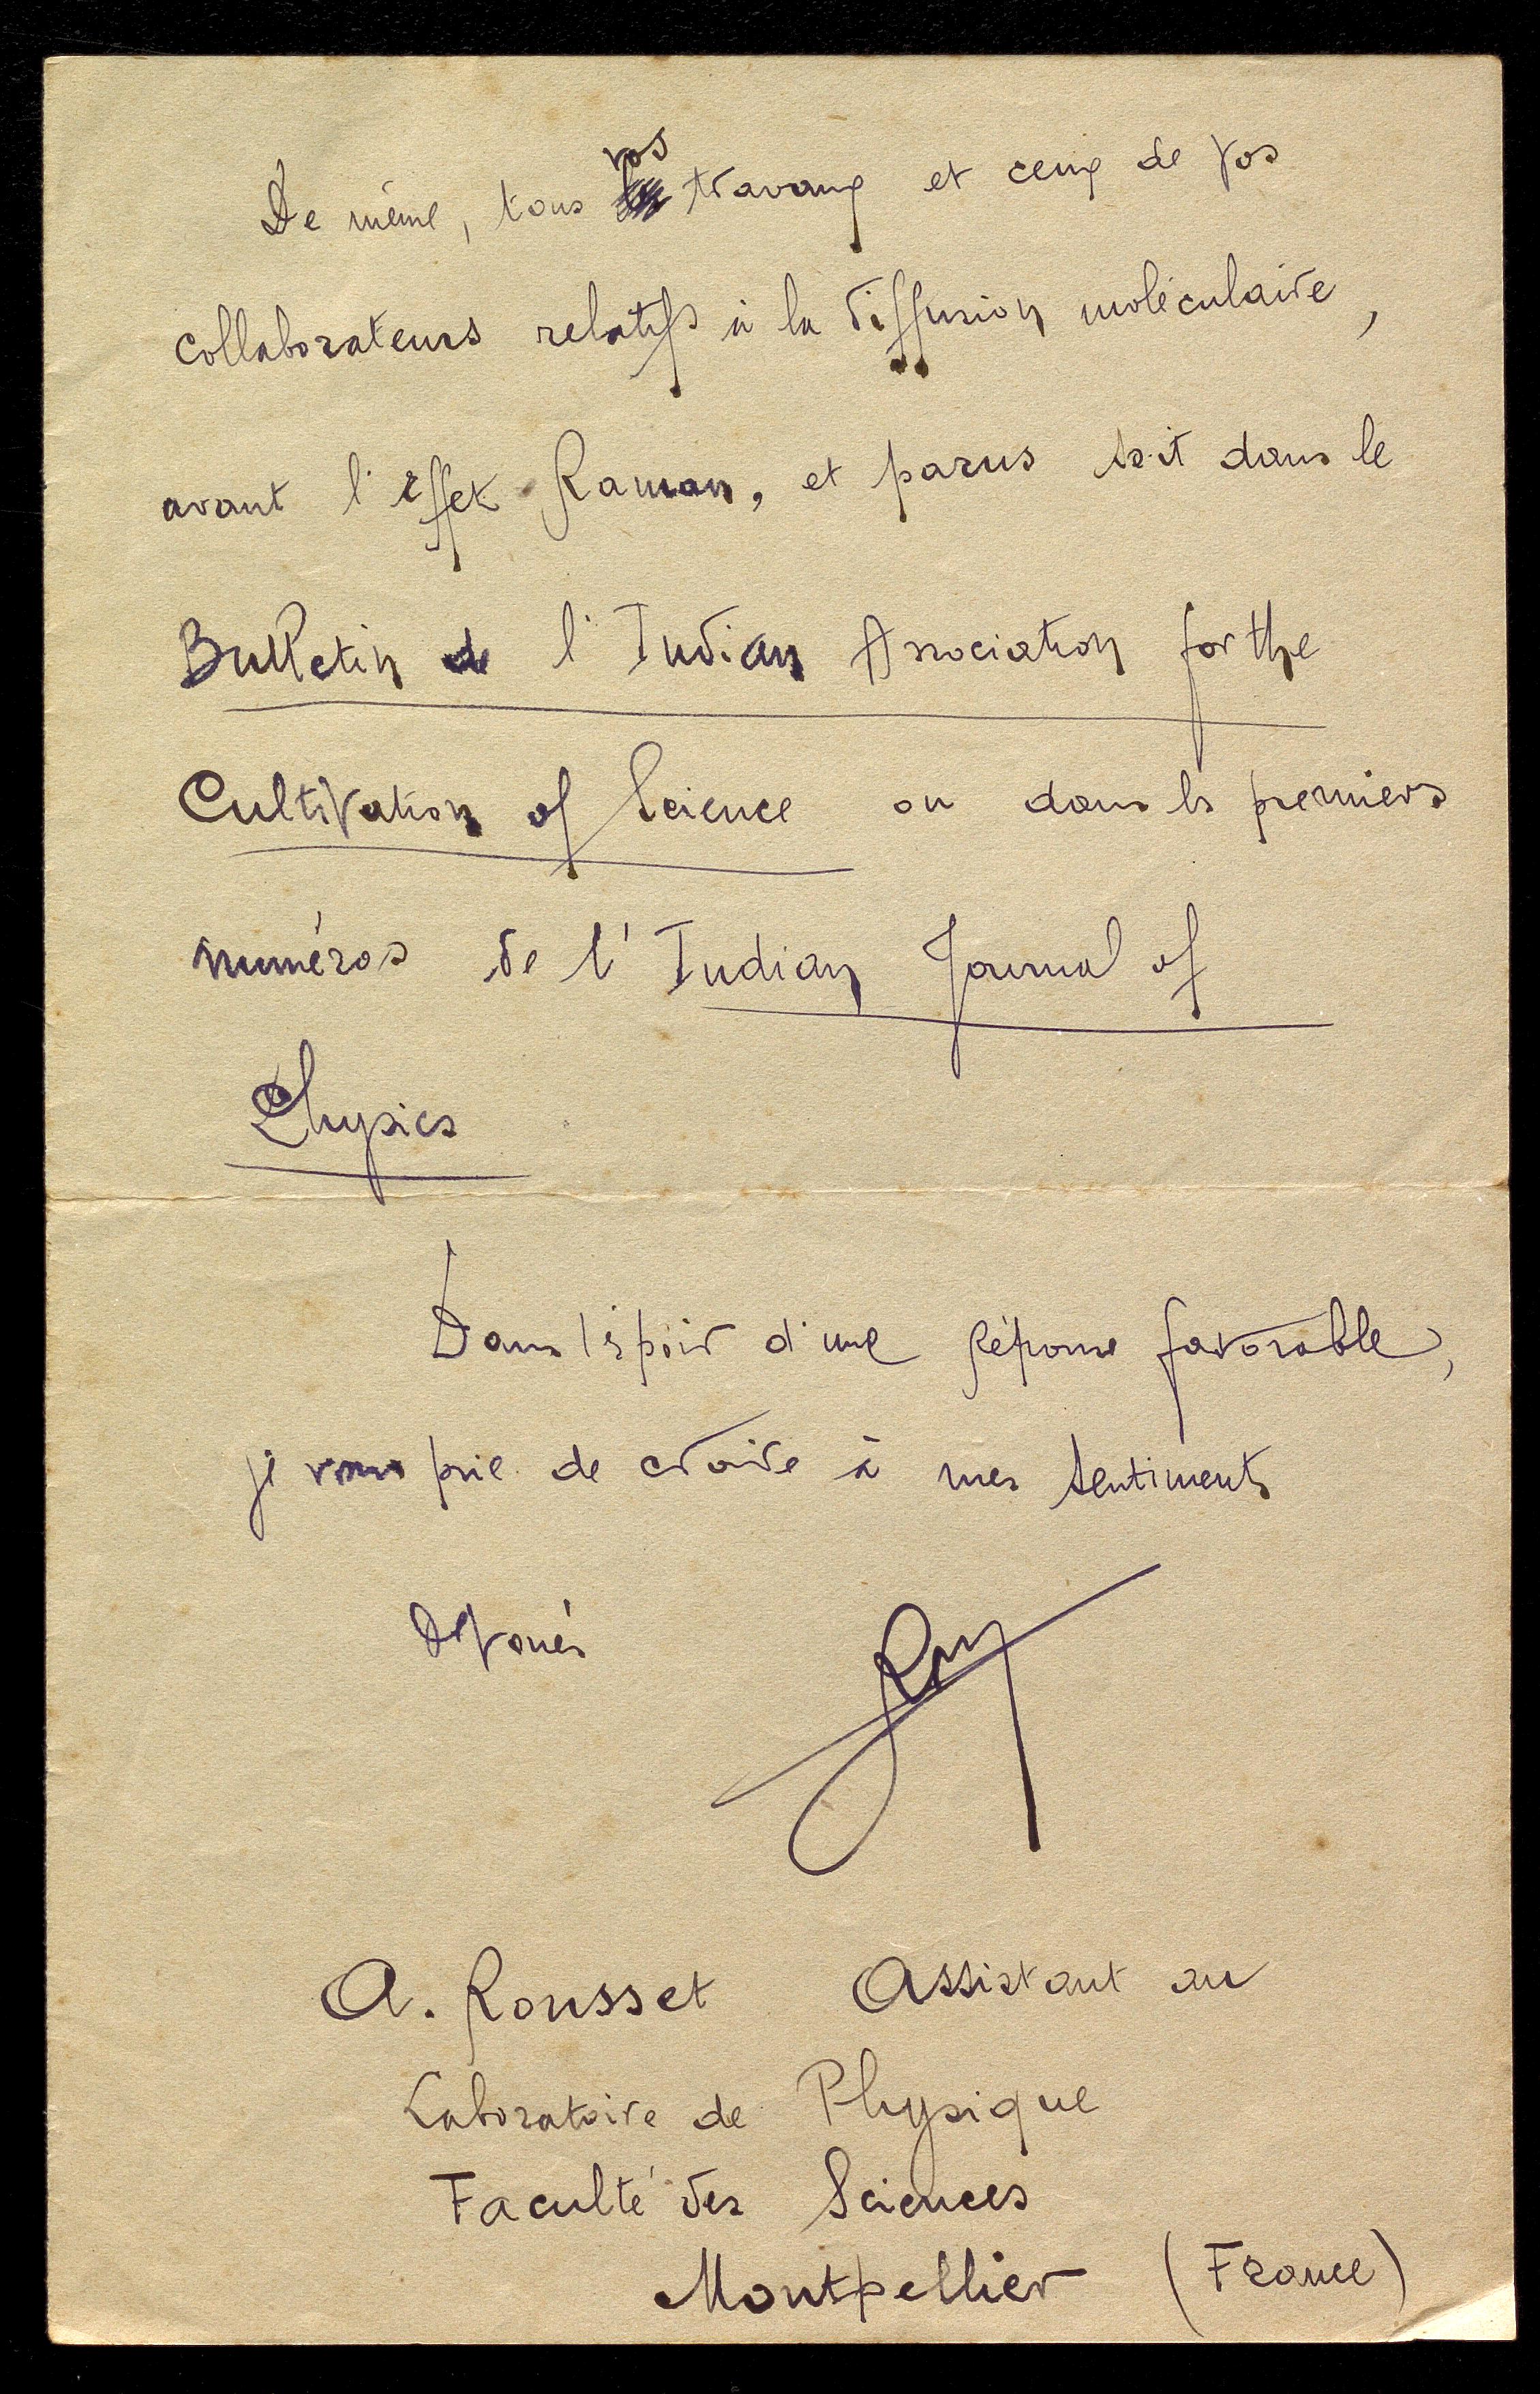 De même, tous vos travaux et ceux de vos
collaborateurs relatifs à la diffusion moléculaire,
avant l'effet Raman, et parus soit dans le
Bulletin de l'Indian Association for the
Cultivation of Science ou dans les premiers
numéros de l'Indian Journal of
Physics
Dans l'espoir d'une réponse favorable,
je vous prie de croire à mes sentiments
dévoués
A. Rousset Assistant au
Laboratoire de Physique
Faculté des Sciences
Montpellier (France)